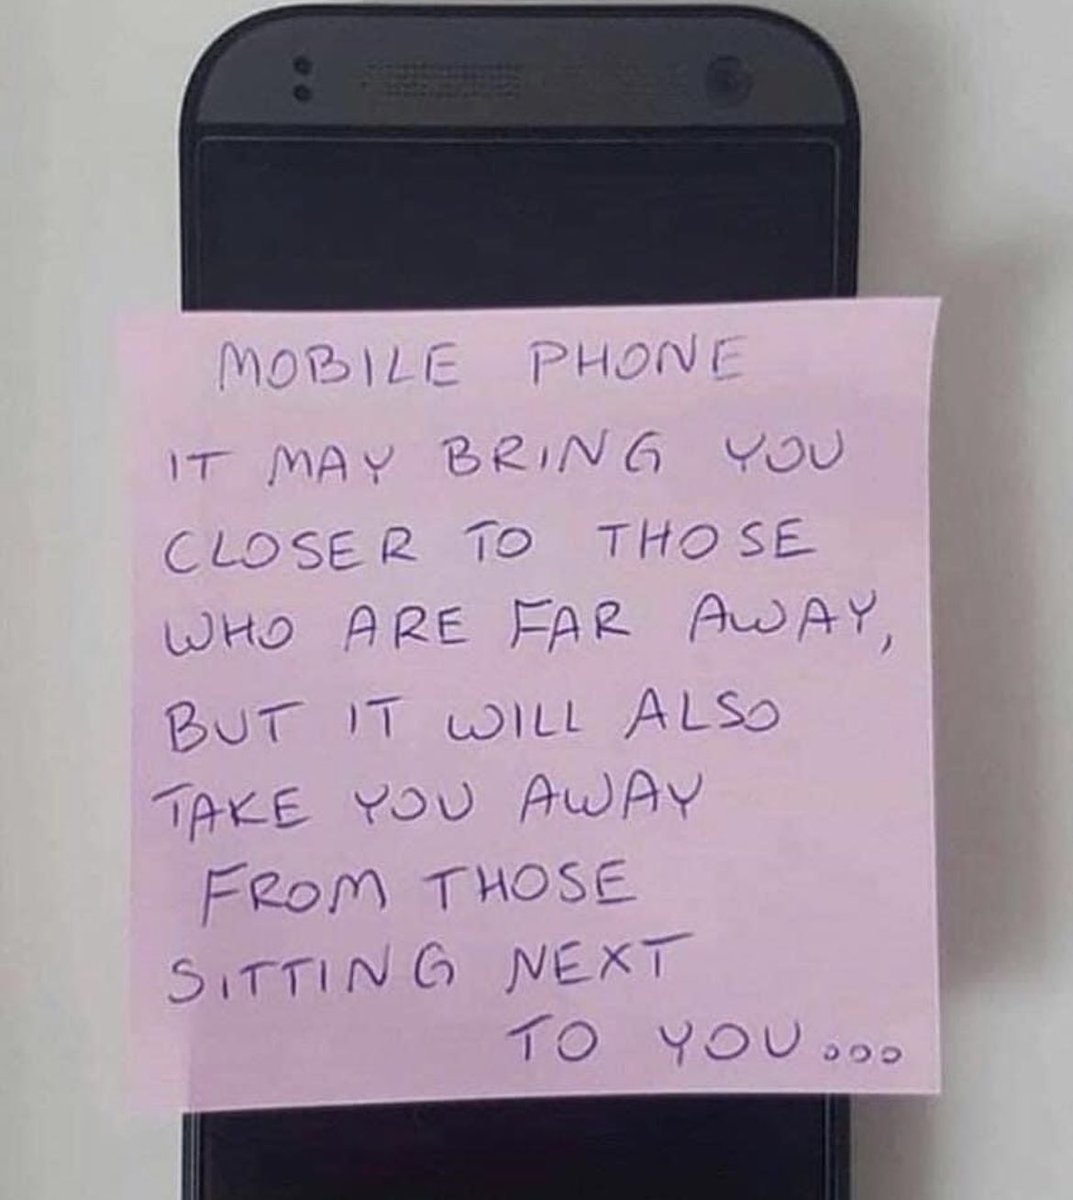 MOBILE PHONE
IT MAY BRING YOU
CLOSER TO THOSE
WHO ARE FAR AWAY,
BUT IT WILL ALSO
TAKE YOU AWAY
FROM THOSE
SITTING NEXT
TO YOU...